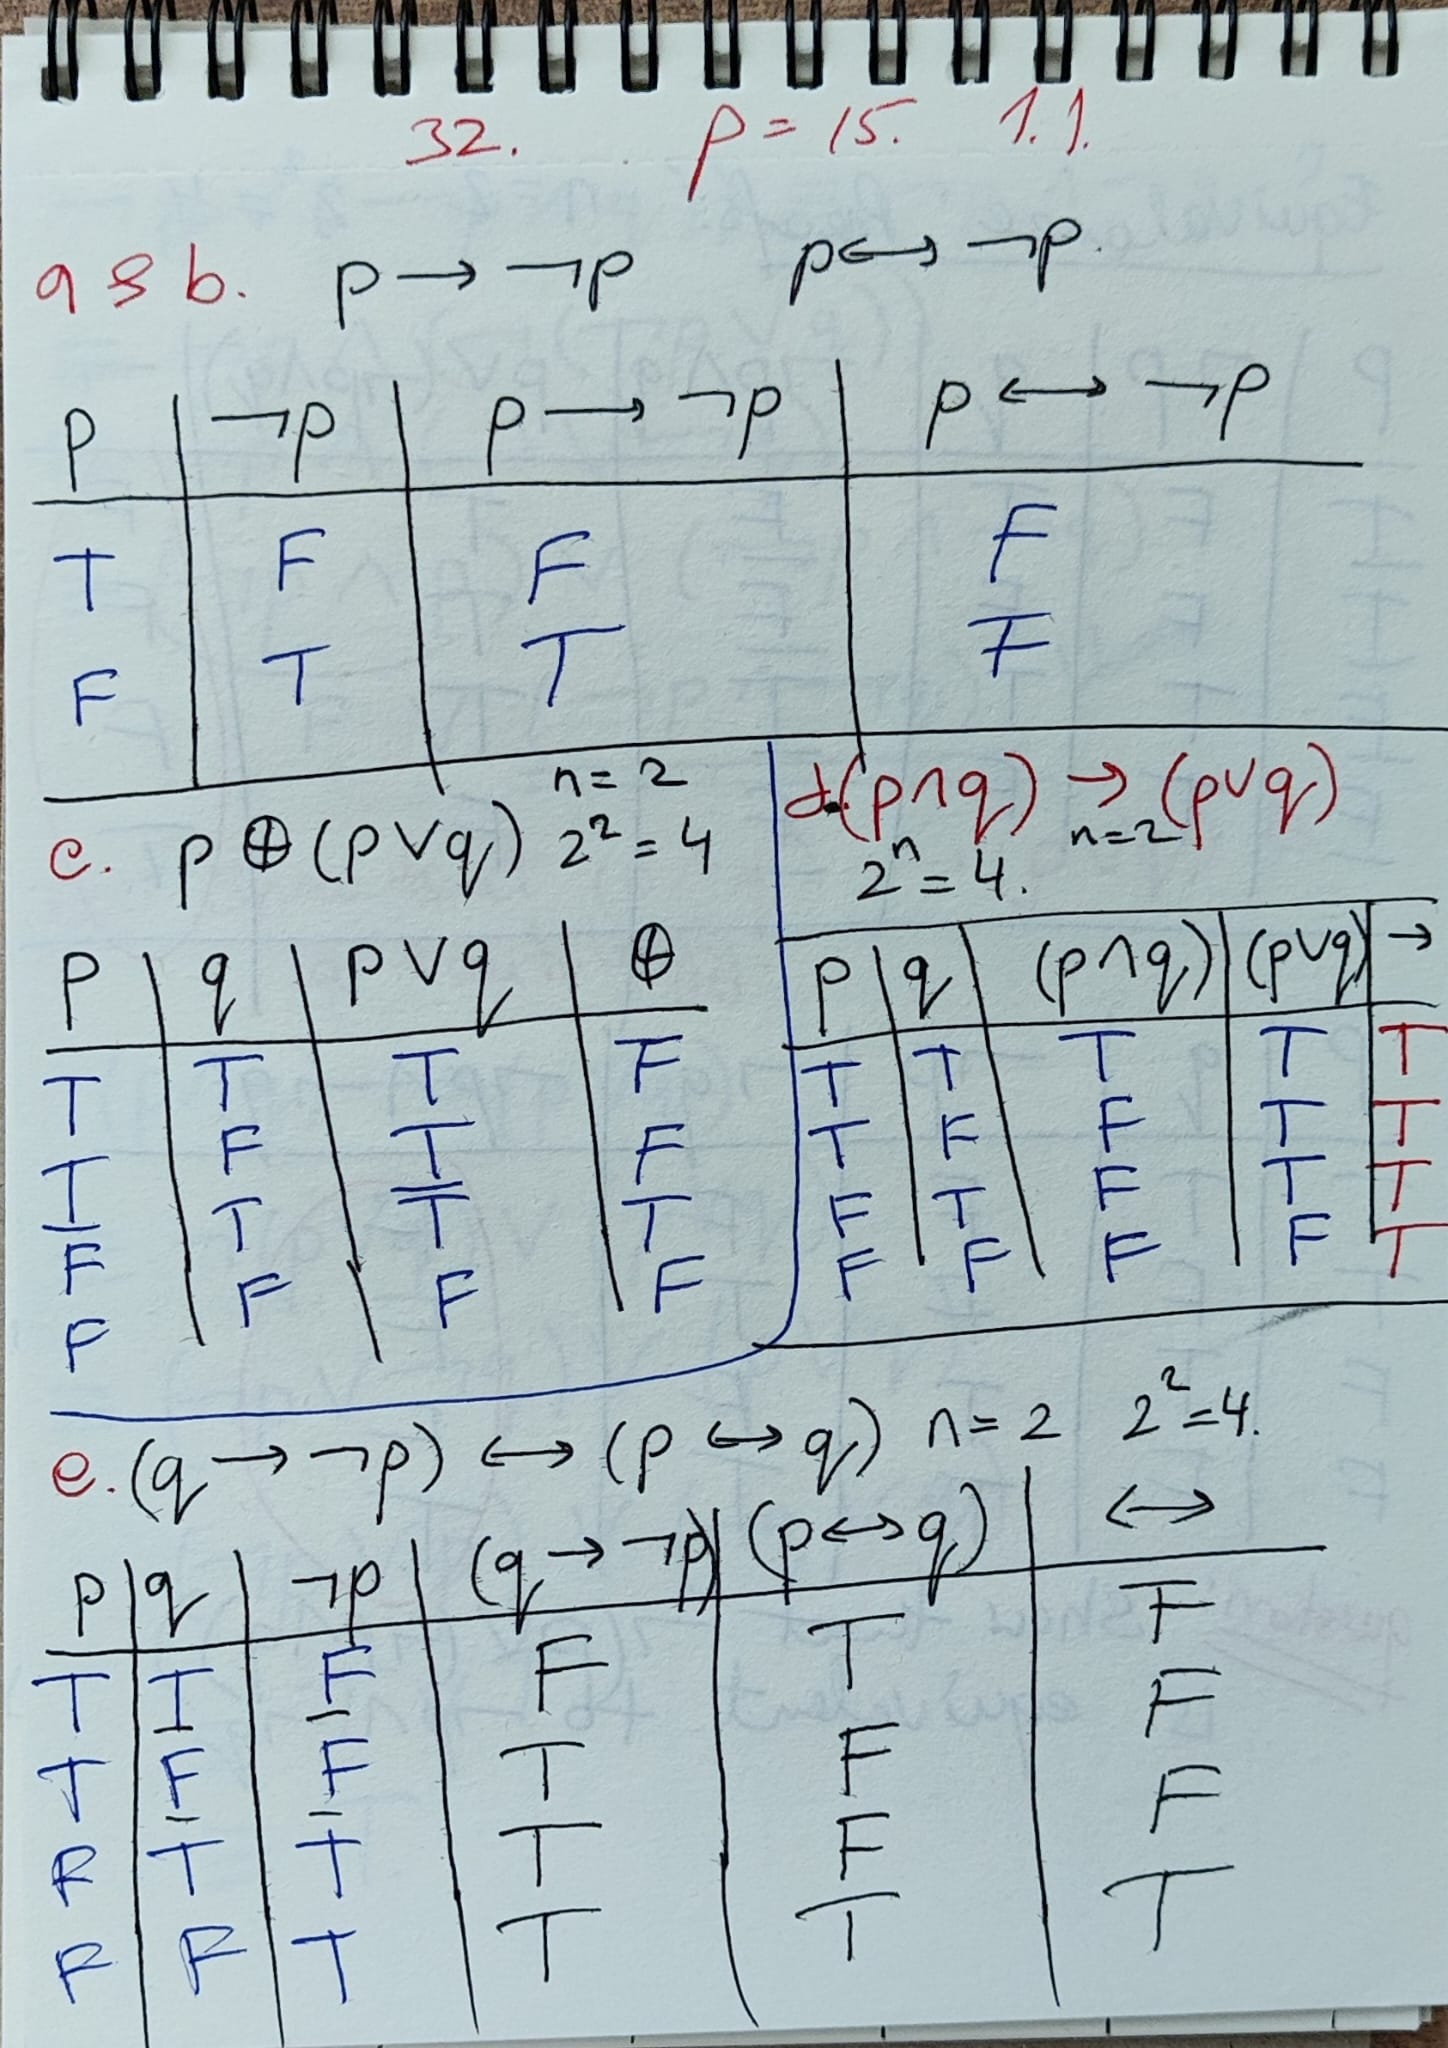 32. p = 15. 1.1.
a & b. p → ¬p p ↔ ¬p.
p ¬p p → ¬p p ↔ ¬p
T F F F
F T T F
c. p ⊕ (p ∨ q) n = 2
2² = 4
p q p ∨ q ⊕
T T T F
T F T F
F T T T
F F F F
d. (p ∧ q) → (p ∨ q)
2ⁿ = 4. n = 2
p q (p ∧ q) (p ∨ q) →
T T T T T
T F F T T
F T F T T
F F F F T
e. (q → ¬p) ↔ (p ↔ q) n = 2 2² = 4.
p q ¬p (q → ¬p) (p ↔ q) ↔
T T F F T F
T F F T F F
F T T T F F
F F T T T T